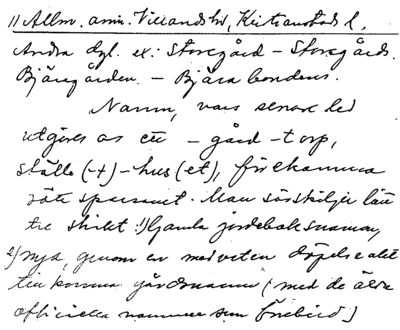 11 Allm. anm. Villands hd, Kristianstads l.
Andra dyl. ex.: Storegård – Storegårds.
Bjäregården. – Bjära bondens.
Namn, vars senare led
utgöres av ett – gård – torp,
ställe (-t) – hus (et), förekomma
rätt sparsamt. Man särskiljer lätt
tre skikt: 1) Gamla jordeboksnamn,
2) nya, genom en medveten döpelseakt
tillkomna gårdsnamn (med de äldre
officiella namnen som förebild)